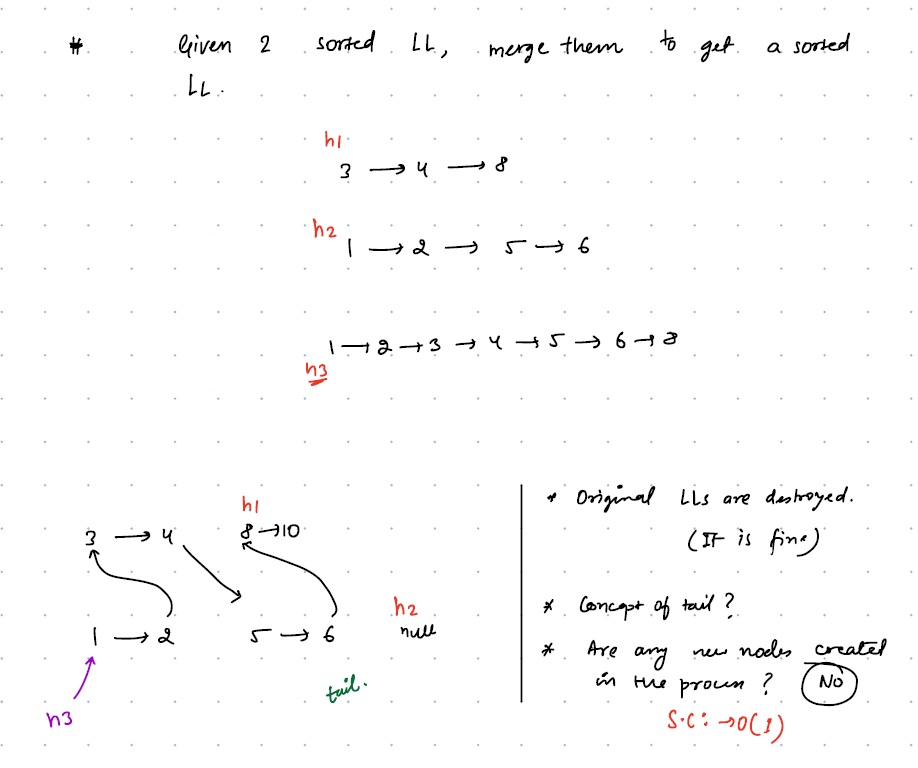 # Given 2 sorted LL, merge them to get a sorted
LL.
h1
3 → 4 → 8
h2
1 → 2 → 5 → 6
1 → 2 → 3 → 4 → 5 → 6 → 8
h3
h1
3 → 4 8 → 10
h2
1 → 2 5 → 6 null
tail.
h3
* Original LLs are destroyed.
(It is fine)
* Concept of tail ?
* Are any new nodes created
in the process ? No
S.C: → O(1)